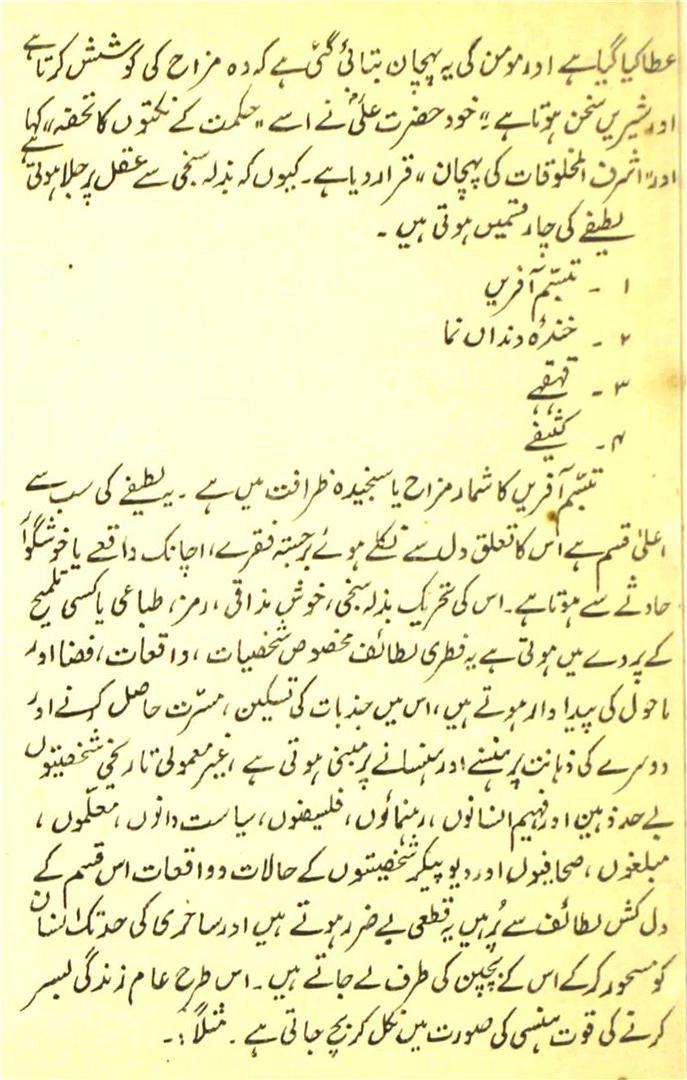 عطا کیا گیا ہے اور مومن کی یہ پہچان بتائی گئی ہے کہ وہ مزاح کی کوشش کرتا ہے
اور شیریں سخن ہوتا ہے۔" خود حضرت علیؓ نے اسے "حکمت کے نکتوں کا تحفہ" کہا ہے
اور "اشرف المخلوقات کی پہچان" قرار دیا ہے۔ کیوں کہ بذلہ سنجی سے عقل پر جلا ہوتی
لطیفے کی چار قسمیں ہوتی ہیں ۔
۱ ۔ تبسّم آفریں
۲ ۔ خندۂ دنداں نما
۳ ۔ قہقہے
۴ ۔ کثیفے
تبسّم آفریں کا شمار مزاح یا سنجیدہ ظرافت میں ہے ۔ یہ لطیفے کی سب سے
اعلیٰ قسم ہے اس کا تعلق دل سے نکلے ہوئے برجستہ فقرے، اچانک واقعے یا خوشگوار
حادثے سے ہوتا ہے۔ اس کی تحریک بذلہ سنجی، خوش مذاقی، رمز، طباعی یا کسی تلمیح
کے پردے میں ہوتی ہے یہ فطری لطائف مخصوص شخصیات، واقعات، فضا اور
ماحول کی پیداوار ہوتے ہیں، اس میں جذبات کی تسکین، مسرّت حاصل کرنے اور
دوسرے کی ذہانت پر ہنسنے اور ہنسانے پر مبنی ہوتی ہے، غیر معمولی تاریخی شخصیتوں
بے حد ذہین اور فہیم انسانوں، رہنماؤں، فلسیفوں، سیاست دانوں، معلّموں،
مبلغوں، صحافیوں اور دیو پیکر شخصیتوں کے حالات و واقعات اس قسم کے
دل کش لطائف سے پُر ہیں یہ قطعی بے ضرر ہوتے ہیں اور ساحری کی حد تک انسان
کو مسحور کرکے اس کے بچپن کی طرف لے جاتے ہیں۔ اس طرح عام زندگی بسر
کرنے کی قوت ہنسی کی صورت میں نکل کر بچ جاتی ہے ۔ مثلاً :۔